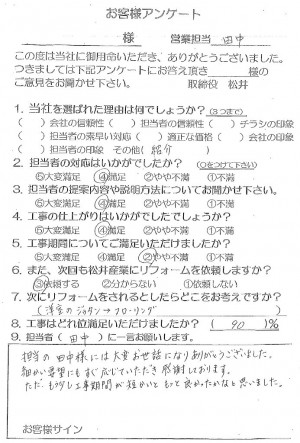 お客様アンケート
様 営業担当 田中
この度は当社に御用命いただき、ありがとうございました。
つきましては下記アンケートにお答え頂き 様の
ご意見をお聞かせ下さい。 取締役 松井
1. 当社を選ばれた理由は何でしょうか?(3つまで)
( )会社の信頼性 ( )担当者の信頼性 ( )チラシの印象
( )担当者の素早い対応 ( )適正な価格 ( )会社の印象
( )担当者の印象 その他( 紹介 )
2. 担当者の対応はいかがでしたか? (○をつけて下さい)
⑤大変満足 ④満足 ②やや不満 ①不満
3. 担当者の提案内容や説明方法についてお聞かせ下さい。
⑤大変満足 ④満足 ②やや不満 ①不満
4. 工事の仕上がりはいかがでしたでしょうか?
⑤大変満足 ④満足 ②やや不満 ①不満
5. 工事期間についてご満足いただけましたか?
⑤大変満足 ④満足 ②やや不満 ①不満
6. また、次回も松井産業にリフォームを依頼しますか?
③依頼する ②分からない ①依頼しない
7. 次にリフォームをされるとしたらどこをお考えですか?
(洋室のジュウタン→フローリング )
8. 工事はどれ位満足いただけましたか?( 90 )%
9. 担当者( 田中 )に一言お願いします。
担当の田中様には大変お世話になりありがとうございました。
細かい要望にもすぐ応じていただき感謝しております。
ただ、もう少し工事期間が短かいともっと良かったかなと思いました。
お客様サイン